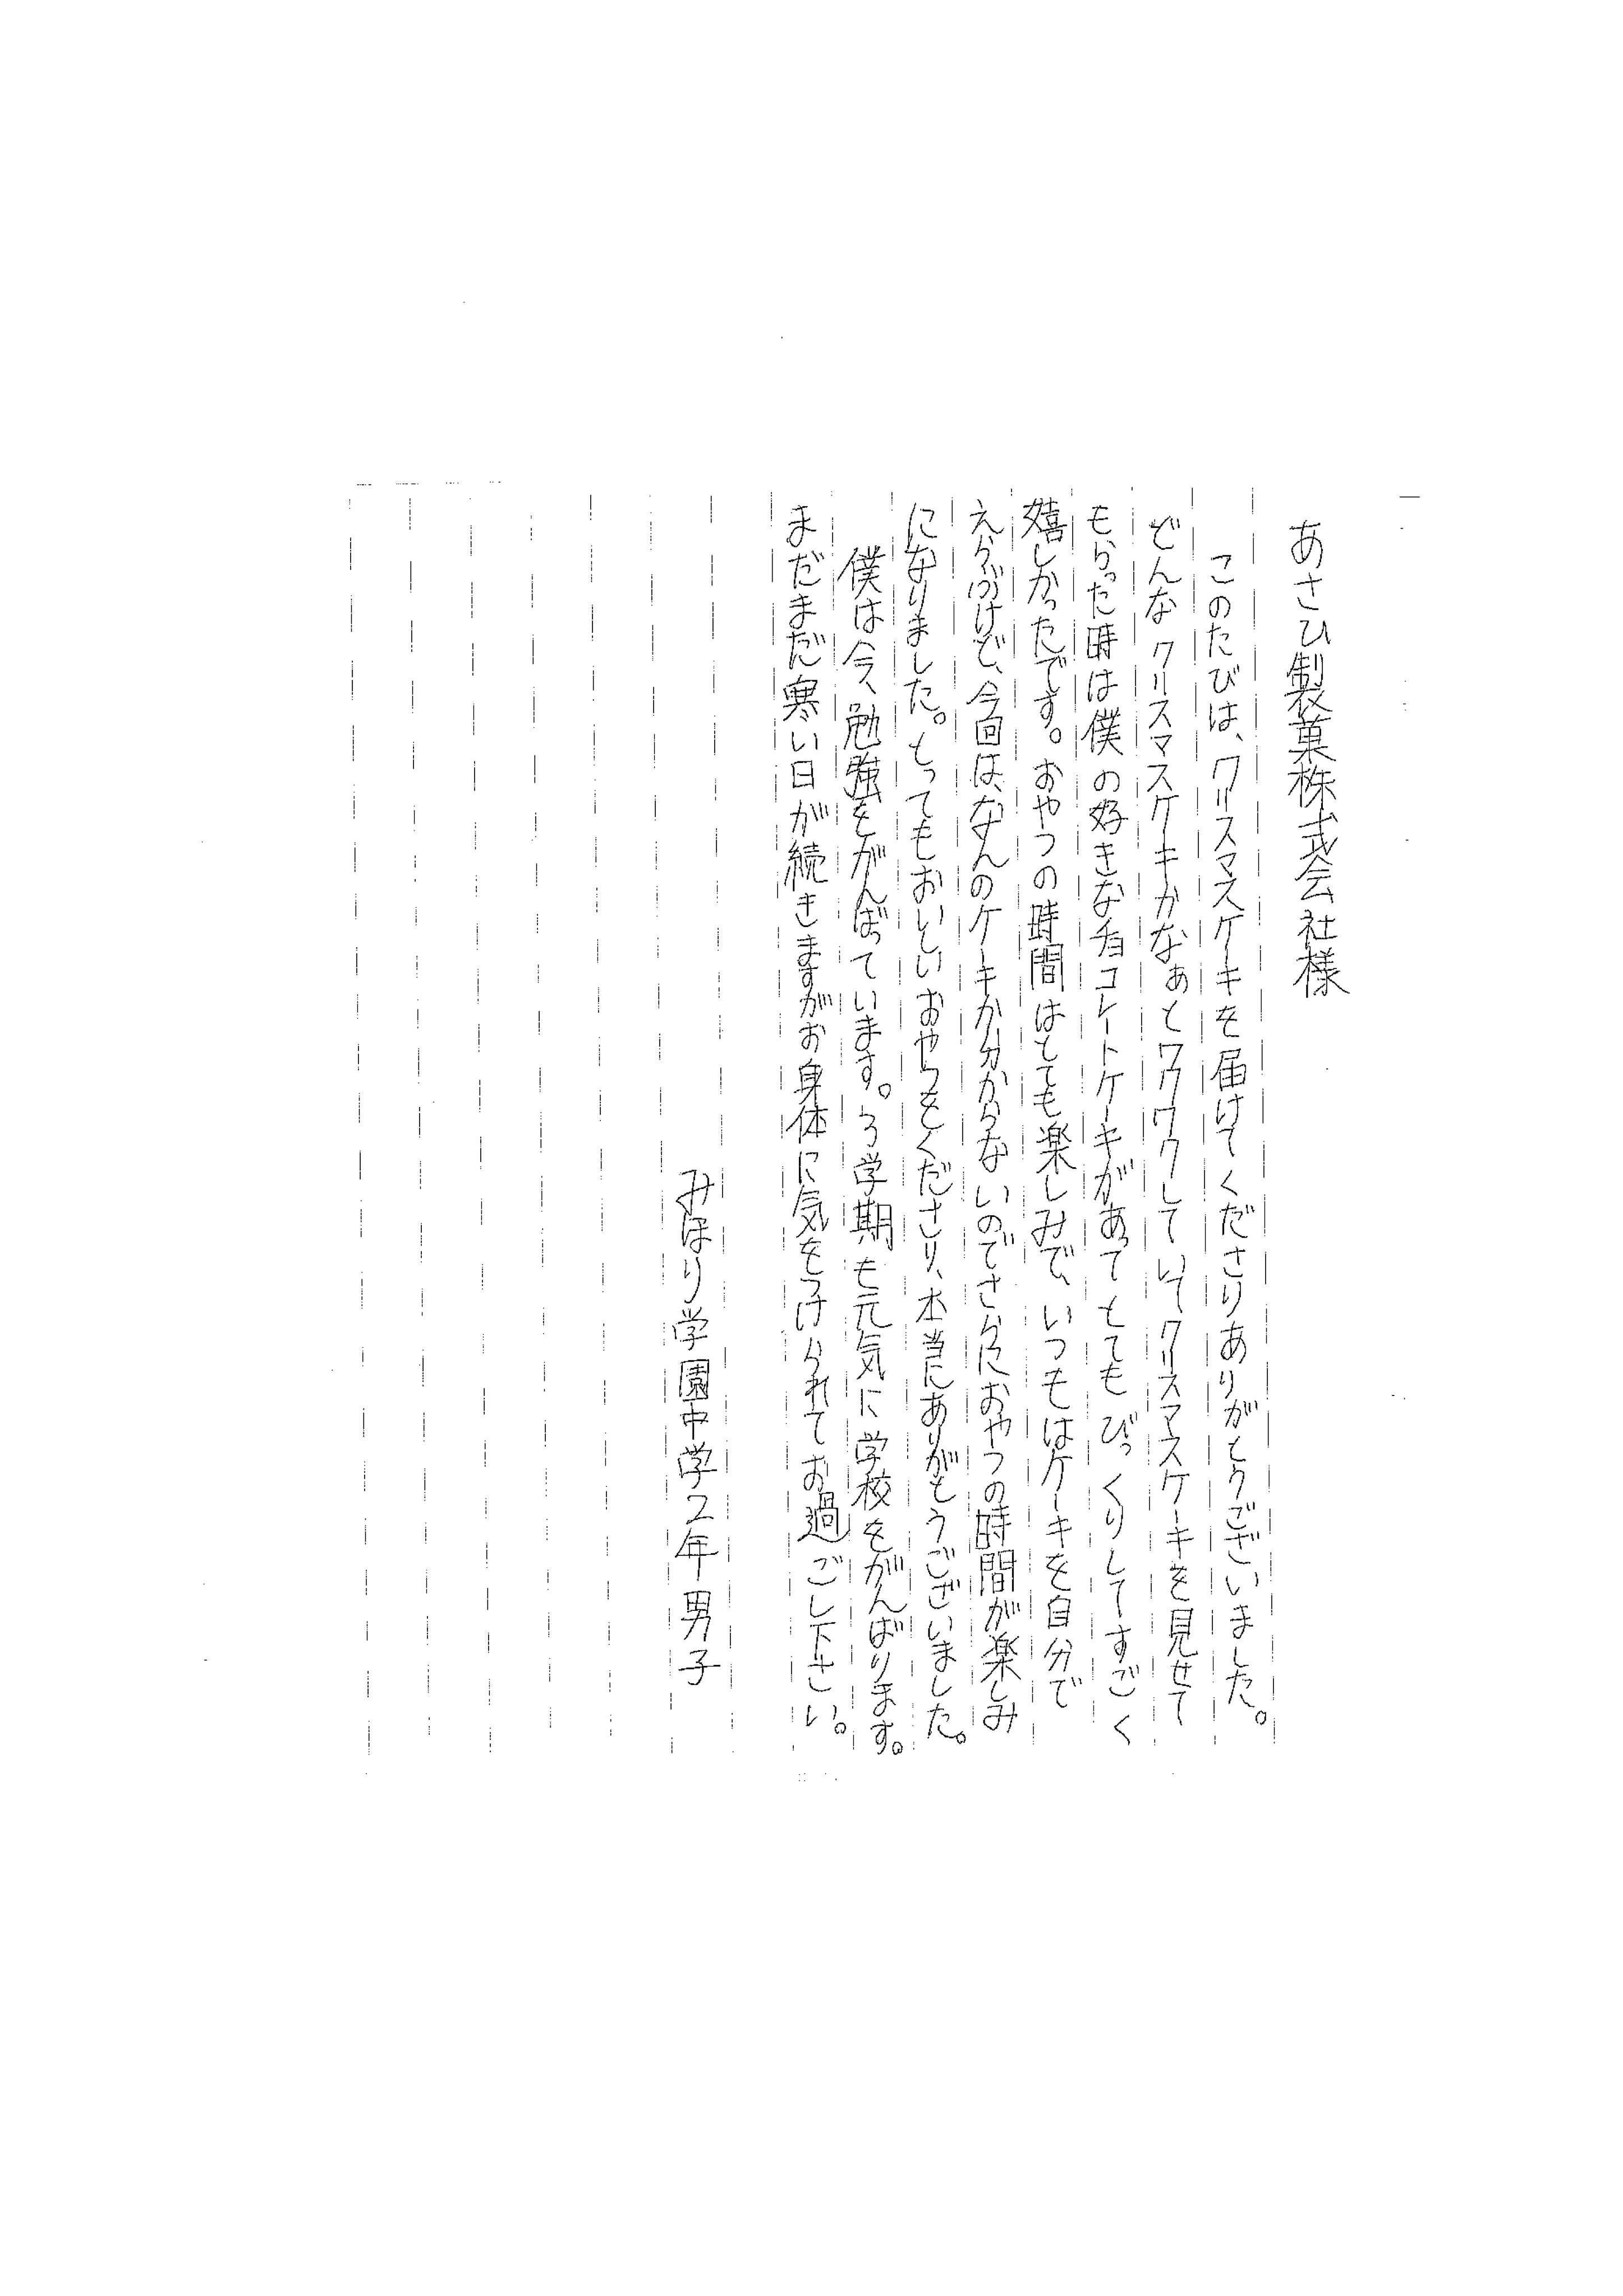 あさひ製菓株式会社様
このたびは、クリスマスケーキを届けてくださりありがとうございました。
どんなクリスマスケーキかなぁとワクワクしていてクリスマスケーキを見せて
もらった時は僕の好きなチョコレートケーキがあってとてもびっくりしてすごく
嬉しかったです。おやつの時間はとても楽しみで、いつもはケーキを自分で
えらぶけど、今回は、なんのケーキか分からないのでさらにおやつの時間が楽しみ
になりました。とってもおいしいおやつをくださり、本当にありがとうございました。
僕は今、勉強をがんばっています。3学期も元気に学校をがんばります。
まだまだ寒い日が続きますがお身体に気をつけられてお過ごし下さい。
みほり学園中学2年男子